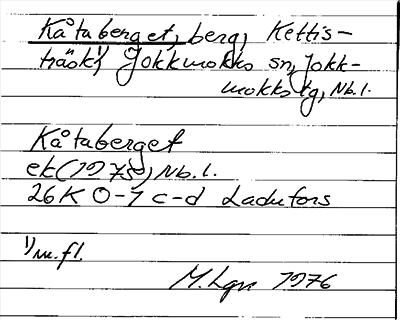 Kåtaberget, berg, Kettis-
träsk¹⁾, Jokkmokks sn, Jokk-
mokks tg, Nb.l.
Kåtaberget
ek (1975), Nb.l.
26K 0-1 c-d Ladufors
¹⁾ m.fl.
M. Lgn 1976